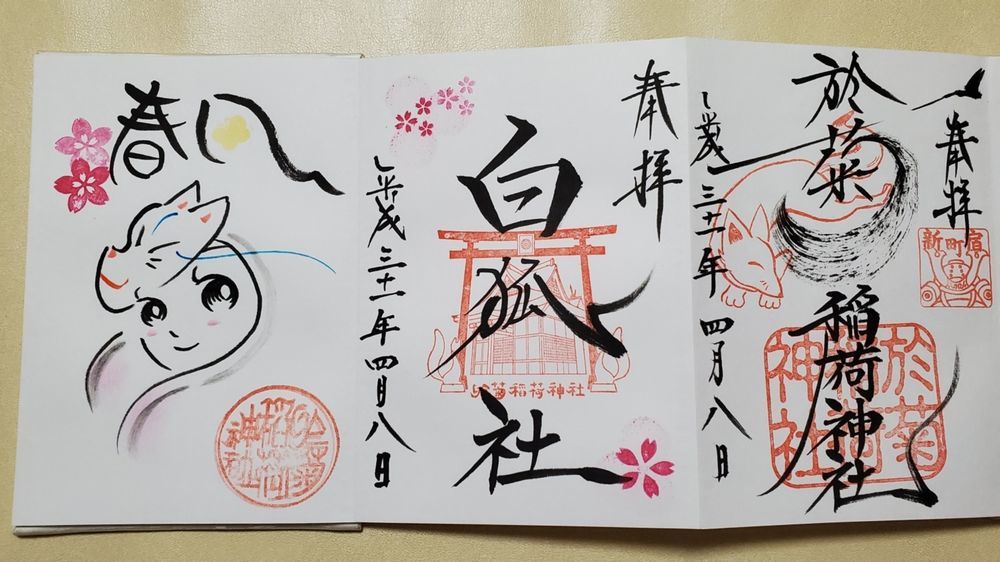 奉拝
於菊稲荷神社
新町宿
於菊稲荷神社
平成三十一年四月八日
奉拝
白狐社
於菊稲荷神社
平成三十一年四月八日
春
稲荷神社